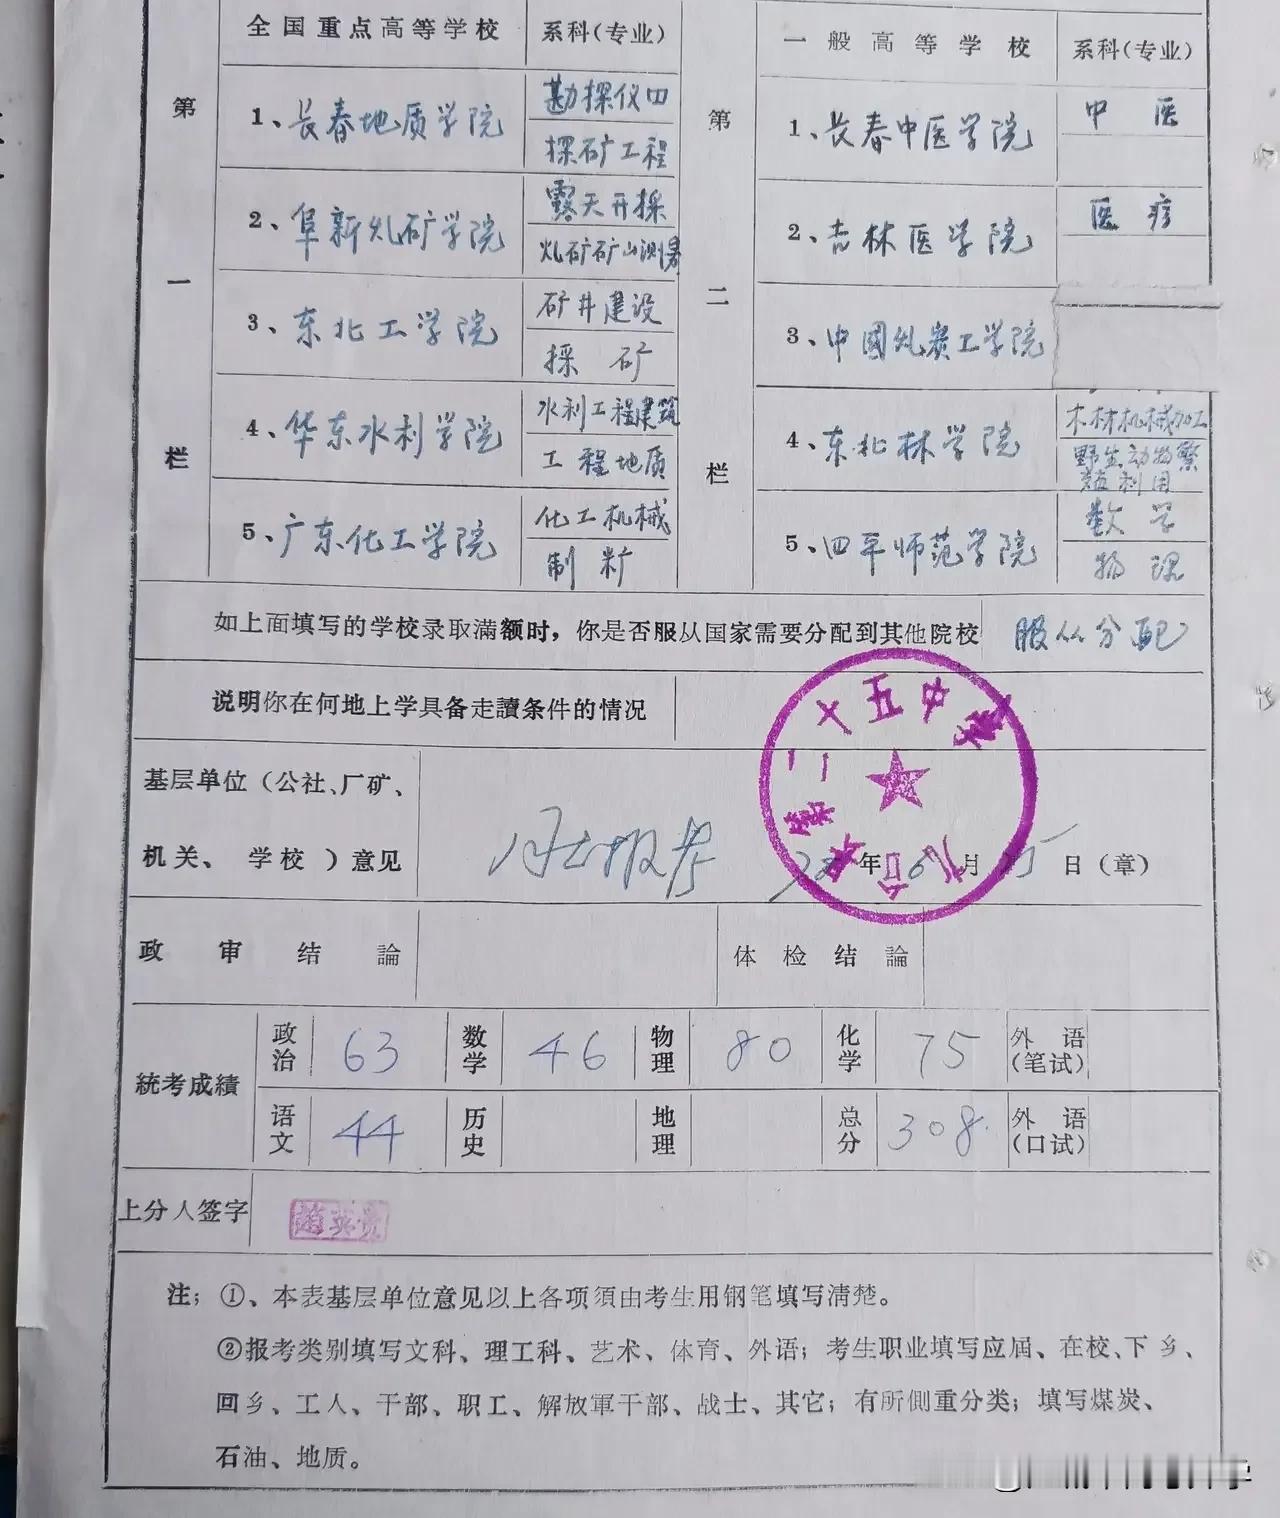 全国重点高等学校 系科(专业) 一般高等学校 系科(专业)
第一栏
1、长春地质学院 勘探仪四
探矿工程
2、阜新煤矿学院 露天开採
煤矿矿山测量
3、东北工学院 矿井建设
採矿
4、华东水利学院 水利工程建筑
工程地质
5、广东化工学院 化工机械
制
第二栏
1、长春中医学院 中医
2、吉林医学院 医疗
3、中國煤炭工学院
4、东北林学院 木材机械加工
野生动物繁
殖利用
5、四平师范学院 数学
物理
如上面填写的学校录取满额时，你是否服从国家需要分配到其他院校 服从分配
说明你在何地上学具备走讀条件的情况
基层单位（公社、厂矿、
机关、学校）意见 同志报考 78年6月15日（章）
第二十五中
政审结論 体检结論
統考成績 政治 63 数学 46 物理 80 化学 75 外语(笔试)
语文 44 历史 地理 总分 308. 外语(口试)
上分人签字 趙英贵
注；①、本表基层单位意见以上各项须由考生用钢笔填写清楚。
②报考类别填写文科、理工科、艺术、体育、外语；考生职业填写应届、在校、下乡、
回乡、工人、干部、职工、解放軍干部、战士、其它；有所侧重分类；填写煤炭、
石油、地质。